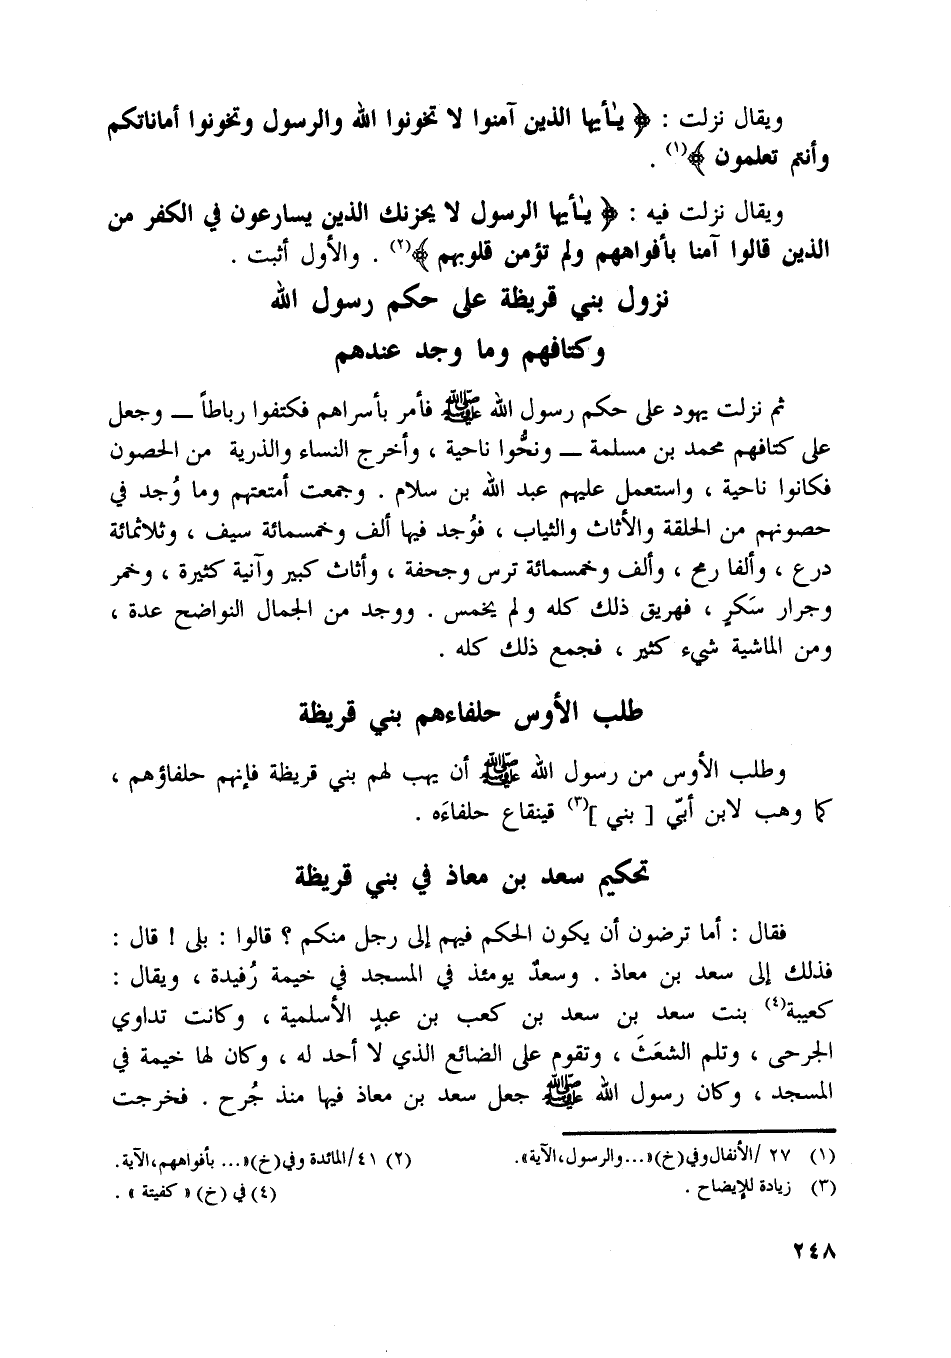 ويقال نزلت : ﴿ يـٰأيها الذين آمنوا لا تخونوا الله والرسول وتخونوا أماناتكم
وأنتم تعلمون ﴾(١) .
ويقال نزلت فيه : ﴿ يـٰأيها الرسول لا يحزنك الذين يسارعون في الكفر من
الذين قالوا آمنا بأفواههم ولم تؤمن قلوبهم ﴾(٢) . والأول أثبت .
نزول بني قريظة على حكم رسول الله
وكتافهم وما وجد عندهم
ثم نزلت يهود على حكم رسول الله ﷺ فأمر بأسراهم فكتفوا رباطاً — وجعل
على كتافهم محمد بن مسلمة — ونحُّوا ناحية ، وأخرج النساء والذرية من الحصون
فكانوا ناحية ، واستعمل عليهم عبد الله بن سلام . وجمعت أمتعتهم وما وُجد في
حصونهم من الحلقة والأثاث والثياب ، فوُجد فيها ألف وخمسمائة سيف ، وثلاثمائة
درع ، وألفا رمح ، وألف وخمسمائة ترس وجحفة ، وأثاث كبير وآنية كثيرة ، وخمر
وجرار سَكرٍ ، فهريق ذلك كله ولم يخمس . ووجد من الجمال النواضح عدة ،
ومن الماشية شيء كثير ، فجمع ذلك كله .
طلب الأوس حلفاءهم بني قريظة
وطلب الأوس من رسول الله ﷺ أن يهب لهم بني قريظة فإنهم حلفاؤهم ،
كما وهب لابن أبيّ [ بني ](٣) قينقاع حلفاءَه .
تحكيم سعد بن معاذ في بني قريظة
فقال : أما ترضون أن يكون الحكم فيهم إلى رجل منكم ؟ قالوا : بلى ! قال :
فذلك إلى سعد بن معاذ . وسعدٌ يومئذ في المسجد في خيمة رُفيدة ، ويقال :
كعيبة(٤) بنت سعد بن سعد بن كعب بن عبدٍ الأسلمية ، وكانت تداوي
الجرحى ، وتلم الشعَثَ ، وتقوم على الضائع الذي لا أحد له ، وكان لها خيمة في
المسجد ، وكان رسول الله ﷺ جعل سعد بن معاذ فيها منذ جُرح . فخرجت
(١) ٢٧ /الأنفال وفي (خ) «... والرسول، الآية». (٢) ٤١/المائدة وفي (خ) «... بأفواههم، الآية.
(٣) زيادة للإيضاح . (٤) في (خ) « كفيتة » .
٢٤٨